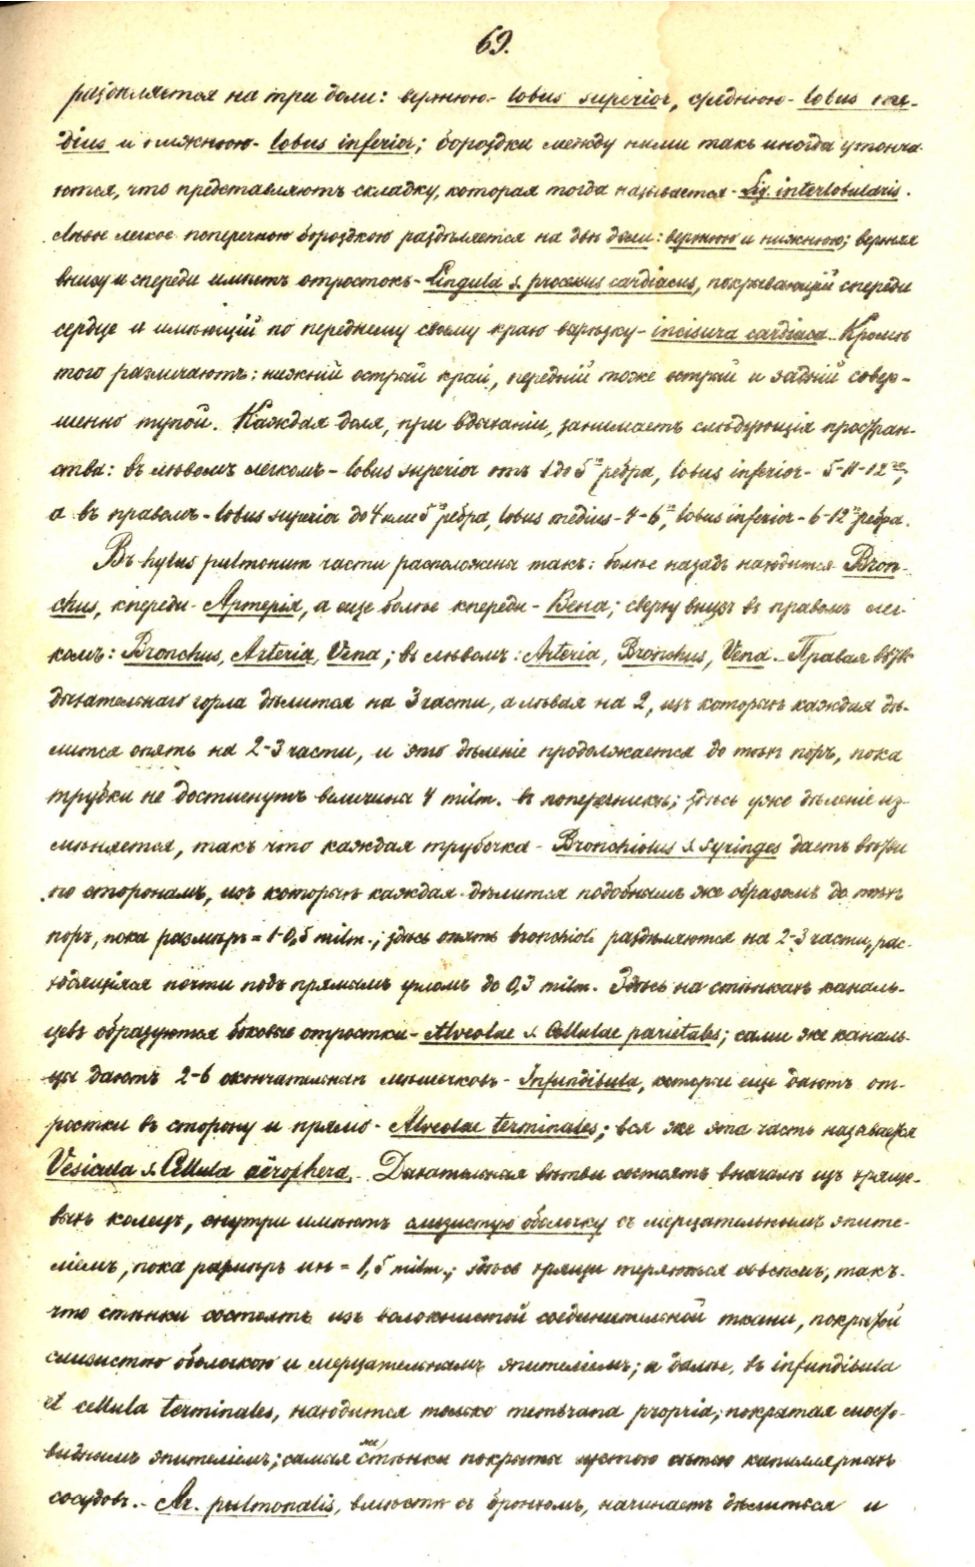 69.
раздѣляется на три доли: верхнюю - lobus superior, среднюю - lobus me-
dius и нижнюю - lobus inferior; бороздки между ними такъ иногда утонча-
ются, что представляютъ складку, которая тогда называется - Lig. interlobularis.
Лѣвое легкое поперечною бороздкою раздѣляется на двѣ доли: верхнюю и нижнюю; верхняя
внизу и спереди имѣетъ отростокъ - Lingula s. processus cardiacus, покрывающій спереди
сердце и имѣющій по переднему своему краю вырѣзку - incisura cardiaca. Кромѣ
того различаютъ: нижній острый край, передній тоже острый и задній совер-
шенно тупой. Каждая доля, при вдыханіи, занимаетъ слѣдующія простран-
ства: въ лѣвомъ легкомъ - lobus superior отъ 1 до 5го ребра, lobus inferior - 5-11-12го;
а въ правомъ - lobus superior до 4 или 5го ребра, lobus medius - 4-6го, lobus inferior - 6-12го ребра.
Въ hylus pulmonum части расположены такъ: болѣе назадъ находится Bron-
chus, кпереди - Артерія, а еще болѣе кпереди - Вена; сверху внизъ въ правомъ лег-
комъ: Bronchus, Arteria, Vena; въ лѣвомъ: Arteria, Bronchus, Vena. - Правая вѣтвь
дыхательнаго горла дѣлится на 3 части, а лѣвая на 2, изъ которыхъ каждая дѣ-
лится опять на 2-3 части, и это дѣленіе продолжается до тѣхъ поръ, пока
трубки не достигнутъ величины 4 milm. въ поперечникѣ; здѣсь уже дѣленіе из-
мѣняется, такъ что каждая трубочка - Bronchiolus s. syringes даетъ вѣтви
по сторонамъ, изъ которыхъ каждая дѣлится подобнымъ же образомъ до тѣхъ
поръ, пока размѣръ = 1-0,5 milm.; здѣсь опять bronchioli раздѣляются на 2-3 части, рас-
ходящіяся почти подъ прямымъ угломъ до 0,3 milm. Здѣсь на стѣнкахъ каналь-
цевъ образуются боковые отростки - Alveolae s. Cellulae parietales; сами же каналь-
цы даютъ 2-6 окончательныхъ мѣшечковъ - Infundibula, которые еще даютъ от-
ростки въ сторону и прямо - Alveolae terminales; вся же эта часть называется
Vesicula s. Cellula aërophera. - Дыхательныя вѣтви состоятъ вначалѣ изъ хряще-
выхъ колецъ, снутри имѣютъ слизистую оболочку съ мерцательнымъ эпите-
ліемъ, пока размѣръ ихъ = 1,5 milm.; здѣсь хрящи теряются совсѣмъ, такъ
что стѣнки состоятъ изъ волокнистой соединительной ткани, покрытой
слизистою оболочкою и мерцательнымъ эпителіемъ; а далѣе, въ infundibula
et cellula terminales, находится только membrana propria, покрытая
виднымъ эпителіемъ; самыя же стѣнки покрыты густою сѣтью капиллярныхъ
сосудовъ. - Ar. pulmonalis, вмѣстѣ съ бронхомъ, начинаетъ дѣлиться и